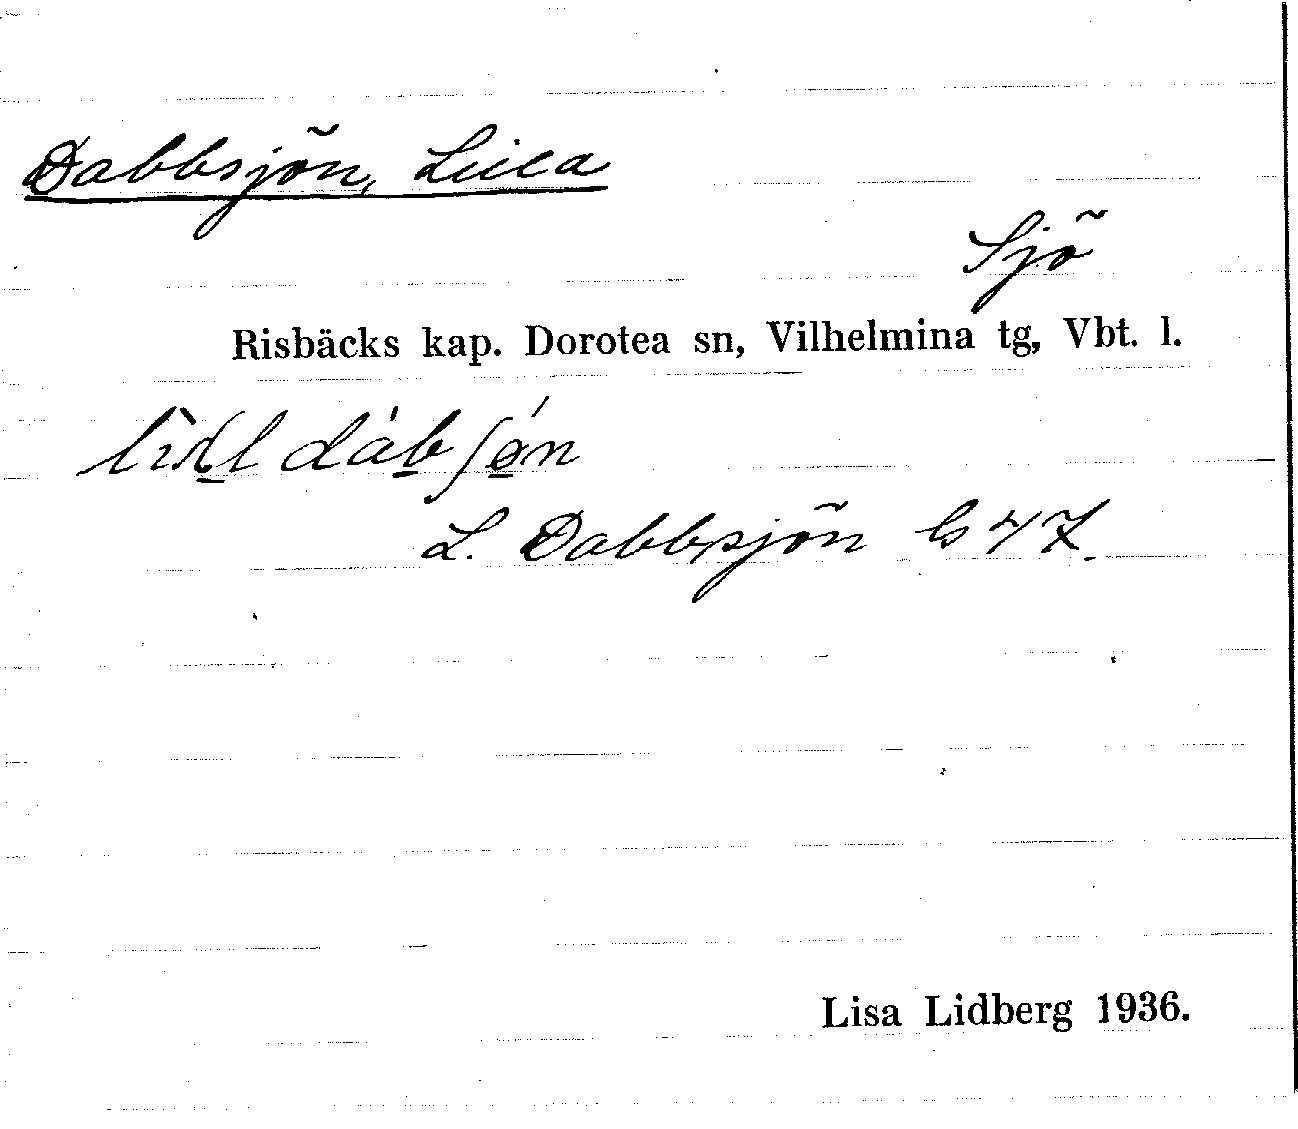 Dabbsjön, Lilla
Sjö
Risbäcks kap. Dorotea sn, Vilhelmina tg, Vbt. l.
L. Dabbsjön G 47.
Lisa Lidberg 1936.